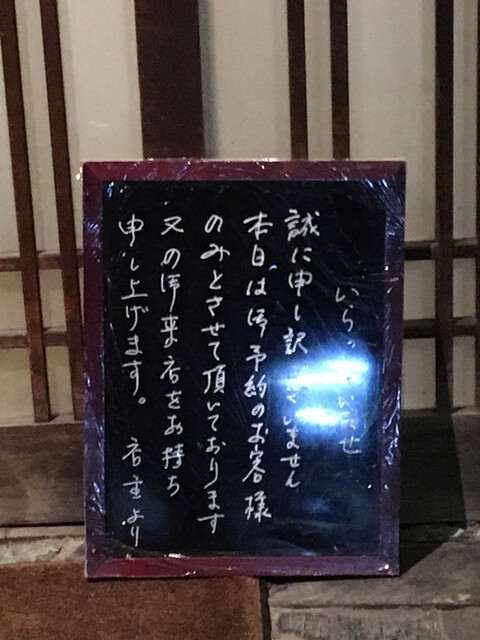 いらっしゃいませ
誠に申し訳ございません
本日は御予約のお客様
のみとさせて頂いております
又の御来店をお待ち
申し上げます。 店主より